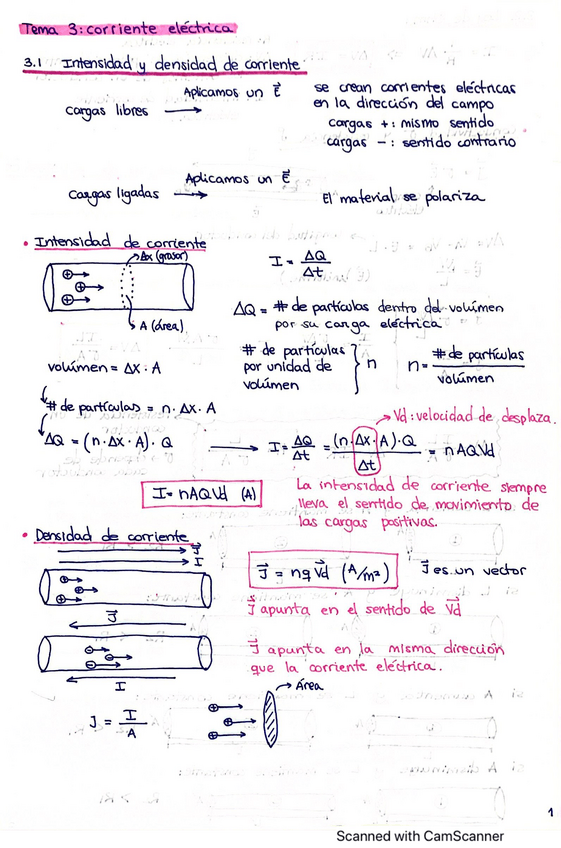 Tema 3: corriente eléctrica
3.1 Intensidad y densidad de corriente
cargas libres
Aplicamos un E⃗
se crean corrientes eléctricas
en la dirección del campo
cargas + : mismo sentido
cargas - : sentido contrario
cargas ligadas
Aplicamos un E⃗
El material se polariza
• Intensidad de corriente
Δx (grosor)
A (área)
I = ΔQ / Δt
ΔQ = # de partículas dentro del volúmen
por su carga eléctrica
volúmen = Δx · A
# de partículas
por unidad de
volúmen
} n
n = # de partículas / volúmen
# de partículas = n · Δx · A
Vd : velocidad de desplaza.
ΔQ = (n · Δx · A) · Q
I = ΔQ / Δt = (n · Δx · A) · Q / Δt = n A Q Vd
I = nAQVd (A)
La intensidad de corriente siempre
lleva el sentido de movimiento de
las cargas positivas.
• Densidad de corriente
J⃗
I
J⃗ = nq V⃗d (A/m²)
J⃗ es un vector
J⃗ apunta en el sentido de V⃗d
J⃗
J⃗ apunta en la misma dirección
que la corriente eléctrica.
I
Área
J = I / A
1
Scanned with CamScanner